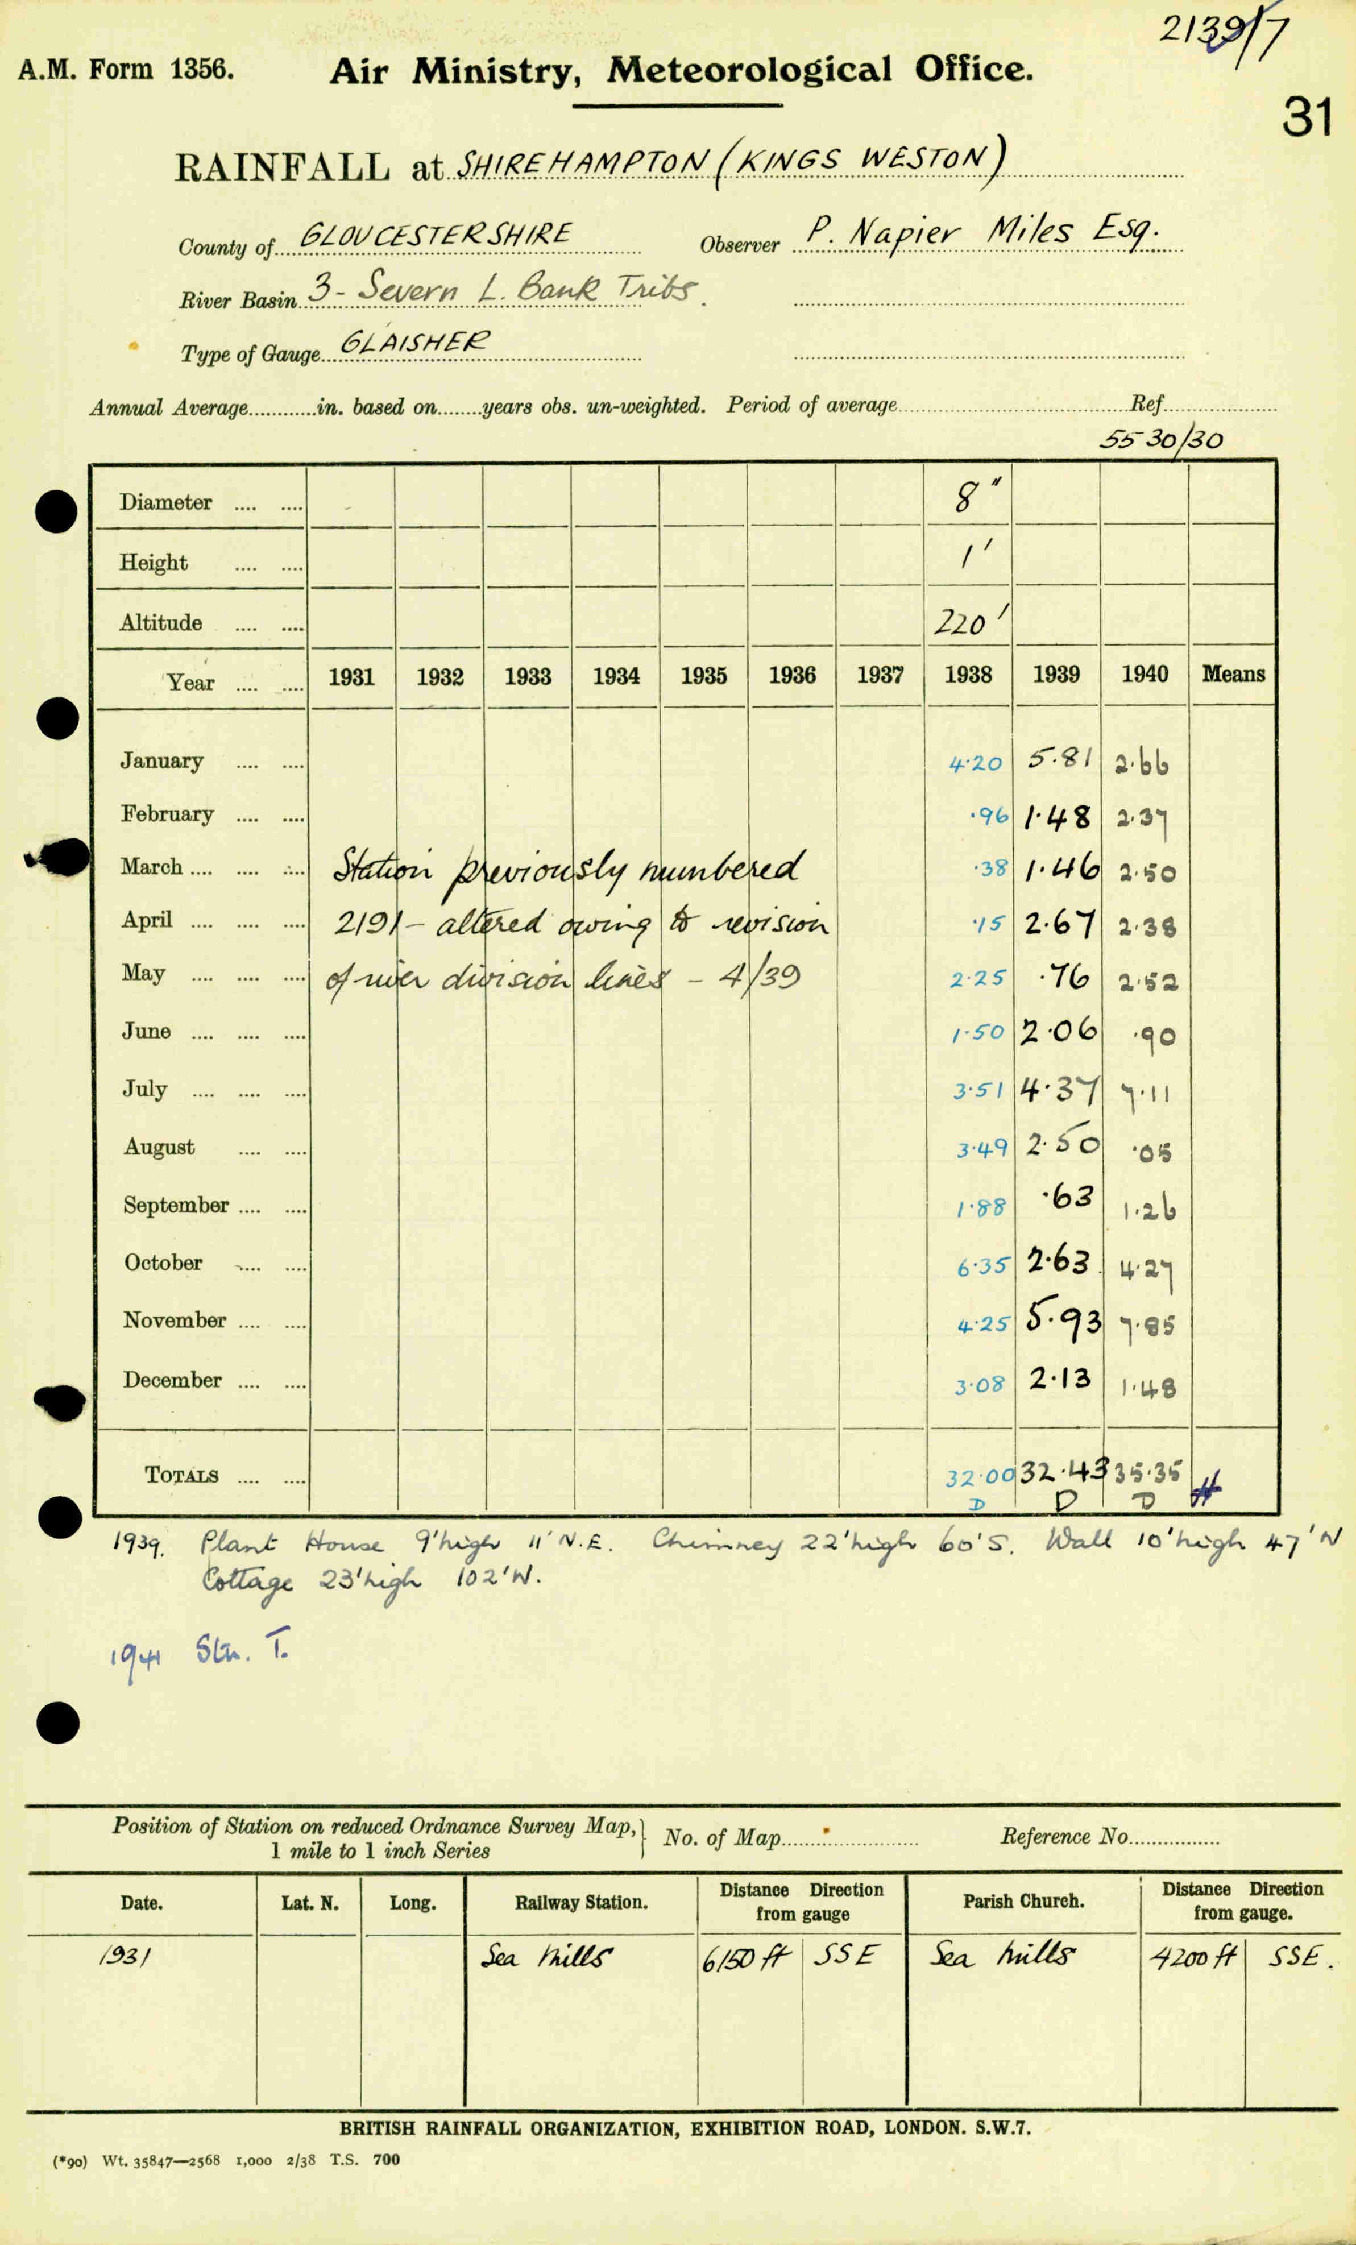 2139/7
A.M. Form 1356. Air Ministry, Meteorological Office.
31
RAINFALL at SHIREHAMPTON (KINGS WESTON)
County of GLOUCESTERSHIRE Observer P. Napier Miles Esq.
River Basin 3- Severn L. Bank Tribs.
Type of Gauge GLAISHER
Annual Average............in. based on........years obs. un-weighted. Period of average.................... Ref....................
5530/30
Diameter .... .... 8"
Height .... .... 1'
Altitude .... .... 220'
Year .... .... 1931 1932 1933 1934 1935 1936 1937 1938 1939 1940 Means
January .... .... 4.20 5.81 2.66
February .... .... .96 1.48 2.37
March .... .... .... Station previously numbered .38 1.46 2.50
April .... .... .... 2191 - altered owing to revision .15 2.67 2.38
May .... .... .... of river division lines - 4/39 2.25 .76 2.52
June .... .... .... 1.50 2.06 .90
July .... .... .... 3.51 4.37 7.11
August .... .... 3.49 2.50 .05
September .... .... 1.88 .63 1.26
October .... .... 6.35 2.63 4.27
November .... .... 4.25 5.93 7.85
December .... .... 3.08 2.13 1.48
TOTALS .... .... 32.00 32.43 35.35
D D D
1939. Plant House 9' high 11' N.E. Chimney 22' high 60' S. Wall 10' high 47' N
Cottage 23' high 102' W.
1941 Stn. T.
Position of Station on reduced Ordnance Survey Map, No. of Map.................... Reference No................
1 mile to 1 inch Series
Date. Lat. N. Long. Railway Station. Distance Direction from gauge Parish Church. Distance Direction from gauge.
1931 Sea Mills 6150 ft SSE Sea Mills 4200 ft SSE.
BRITISH RAINFALL ORGANIZATION, EXHIBITION ROAD, LONDON. S.W.7.
(*90) Wt. 35847—2568 1,000 2/38 T.S. 700